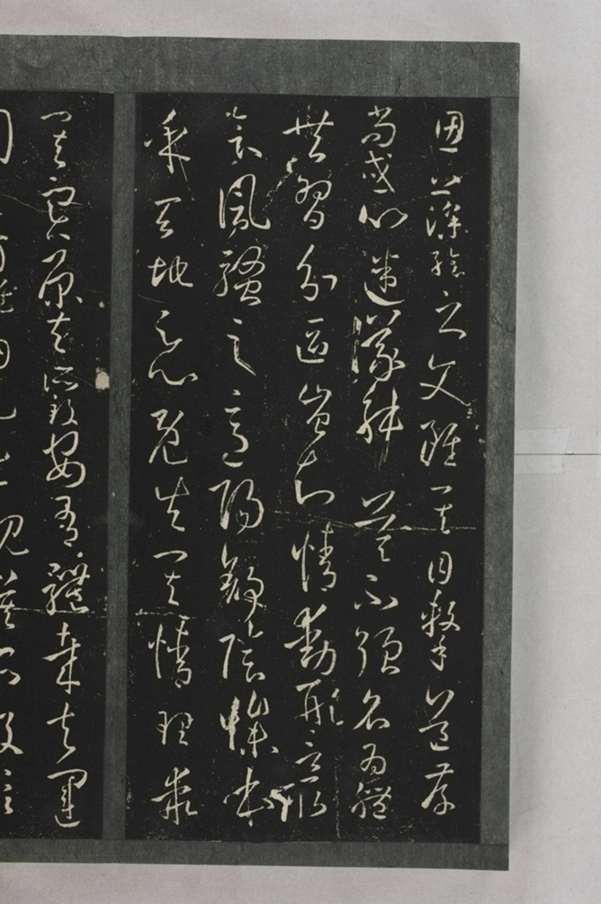 思藻繪之文雖其目擊道存
尚或心迷議舛莫不強名為體
共習分區豈知情動形言取
會風騷之意陽舒陰慘本
乎天地之心既失其情理乖
其實原夫所致安有體哉夫運